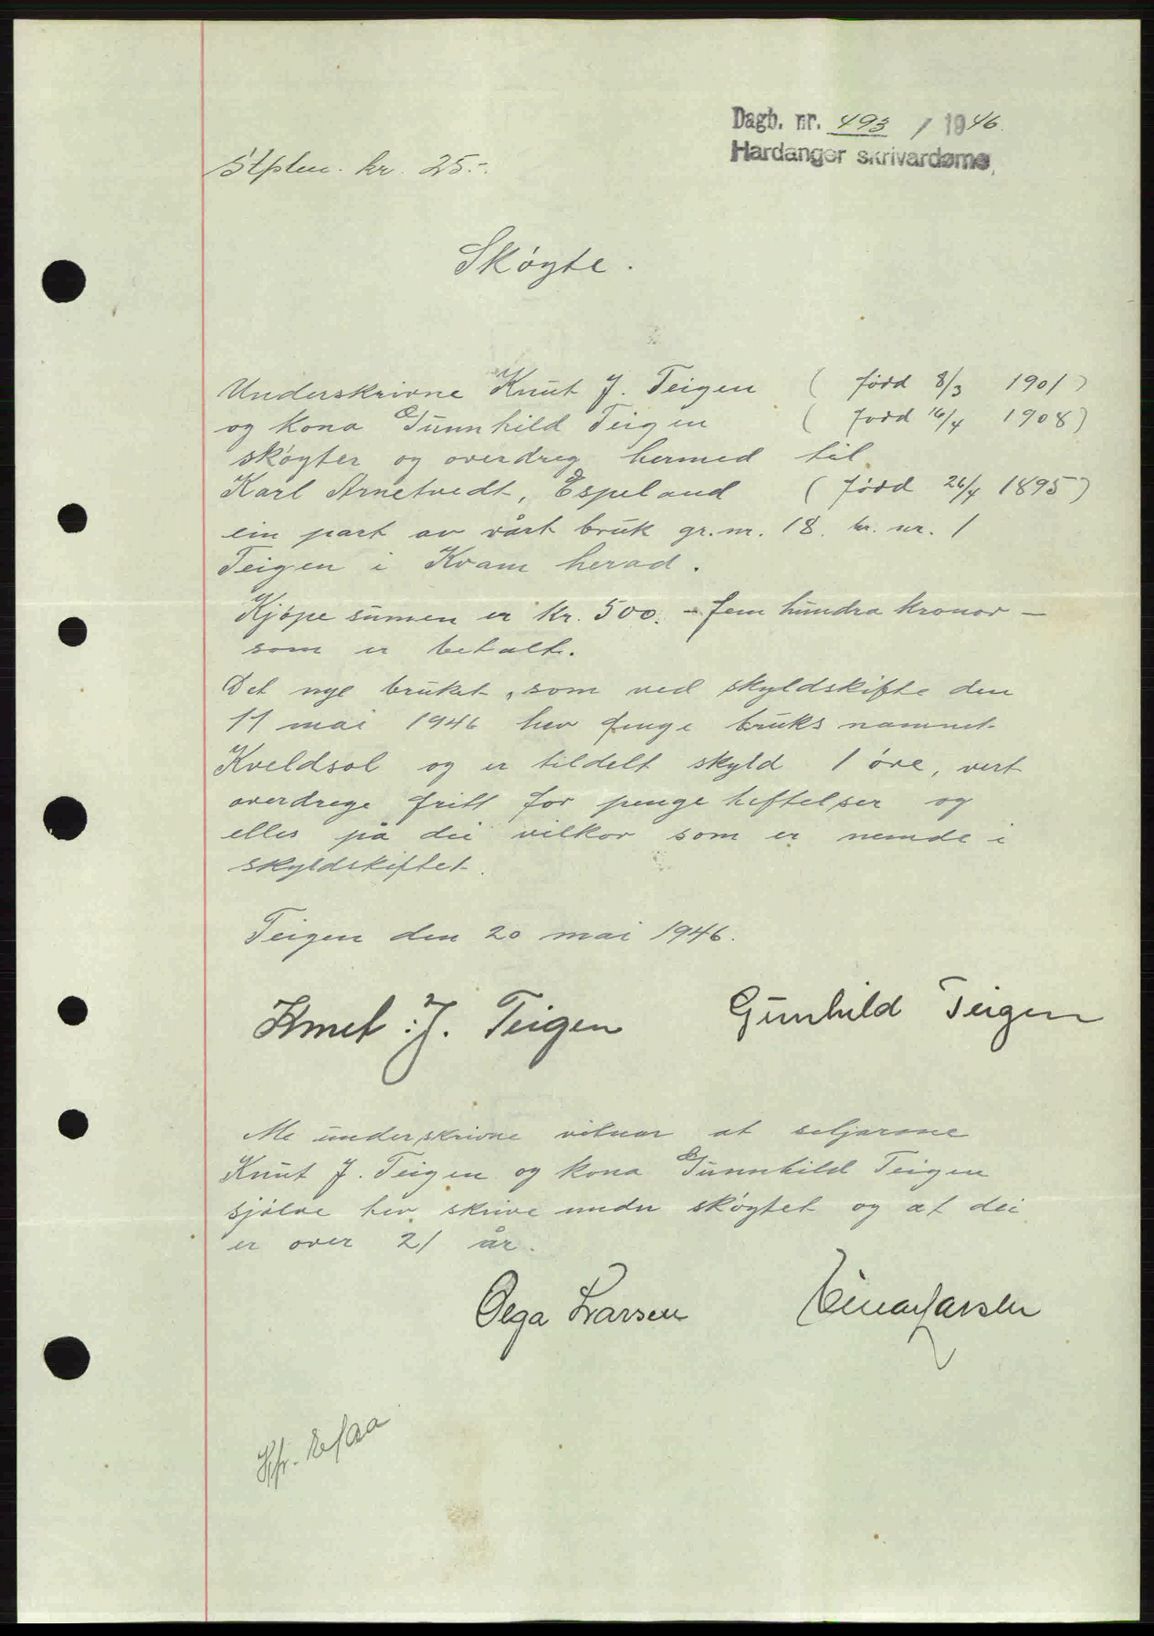 Dagb. nr. 493 / 1946.
Hardanger skrivardøme,
Stplm. kr. 25.-.
Skøyte.
Underskrivne Knut J. Teigen ( född 8/3 1901)
og kona Gunnhild Teigen ( född 16/4 1908)
skøyter og overdreg hermed til
Karl Arnetvedt, Espeland ( född 26/4 1895)
ein part av vårt bruk gr.nr. 18. br. nr. 1
Teigen i Kvam herad.
Kjøpesumen er kr. 500. - fem hundra kronor -
som er betalt.
Det nye bruket, som ved skyldskifte den
11 mai 1946 hev fenge bruksnamnet
Kveldsol og er tildelt skyld 1 øre, vert
overdrege fritt for pengeheftelser og
elles på dei vilkor som er nemde i
skyldskiftet.
Teigen den 20 mai 1946.
Knut J. Teigen Gunhild Teigen
Me underskrivne vitnar at seljarane
Knut J. Teigen og kona Gunnhild Teigen
sjølve hev skrive under skøytet og at dei
er over 21 år.
Olga Larsen Einar Larsen